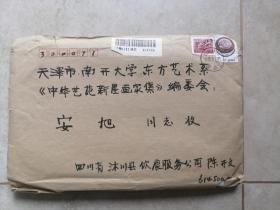 300071
天津市南开大学东方艺术系
《中华艺苑新星画家集》编委会:
安旭 同志收
四川省沐川县饮食服务公司 陈
614500